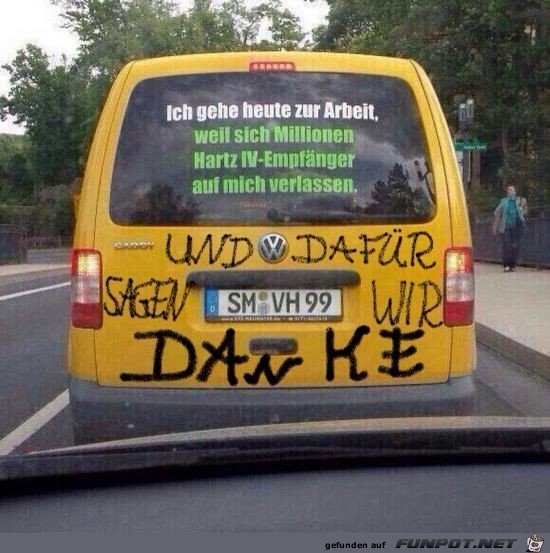 Ich gehe heute zur Arbeit,
weil sich Millionen
Hartz IV-Empfänger
auf mich verlassen.
CADDY
UND DAFÜR
SAGEN WIR
SM VH 99
DANKE
gefunden auf FUNPOT.NET